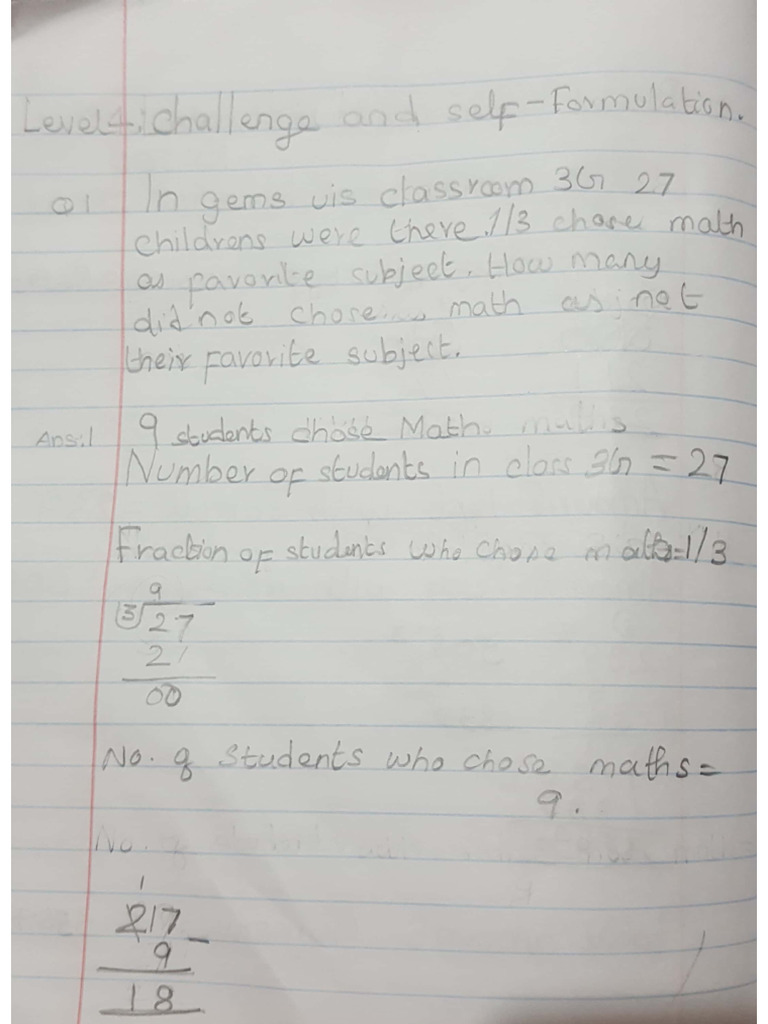 Level 4: Challenge and self-Formulation.
Q1 In gems vis classroom 3G 27
childrens were there. 1/3 chose math
as favorite subject. How many
did not chose math as not
their favorite subject.
Ans:1 9 students chose Math.
Number of students in class 3G = 27
Fraction of students who chose maths=1/3
9
3 27
27
00
No. of students who chose maths =
9.
No. of
1
217
9 -
18